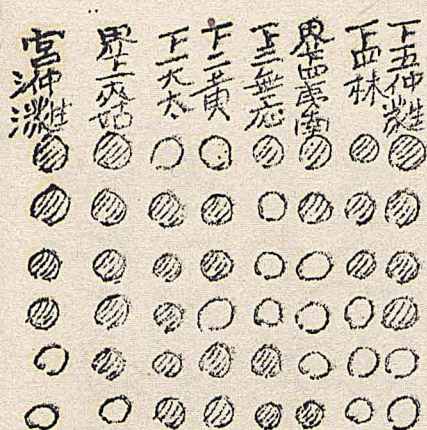 下五仲蕤
下四林
界上四夷南
下三無応
下二黄
下一大太
界上一夾姑
宮仲蕤